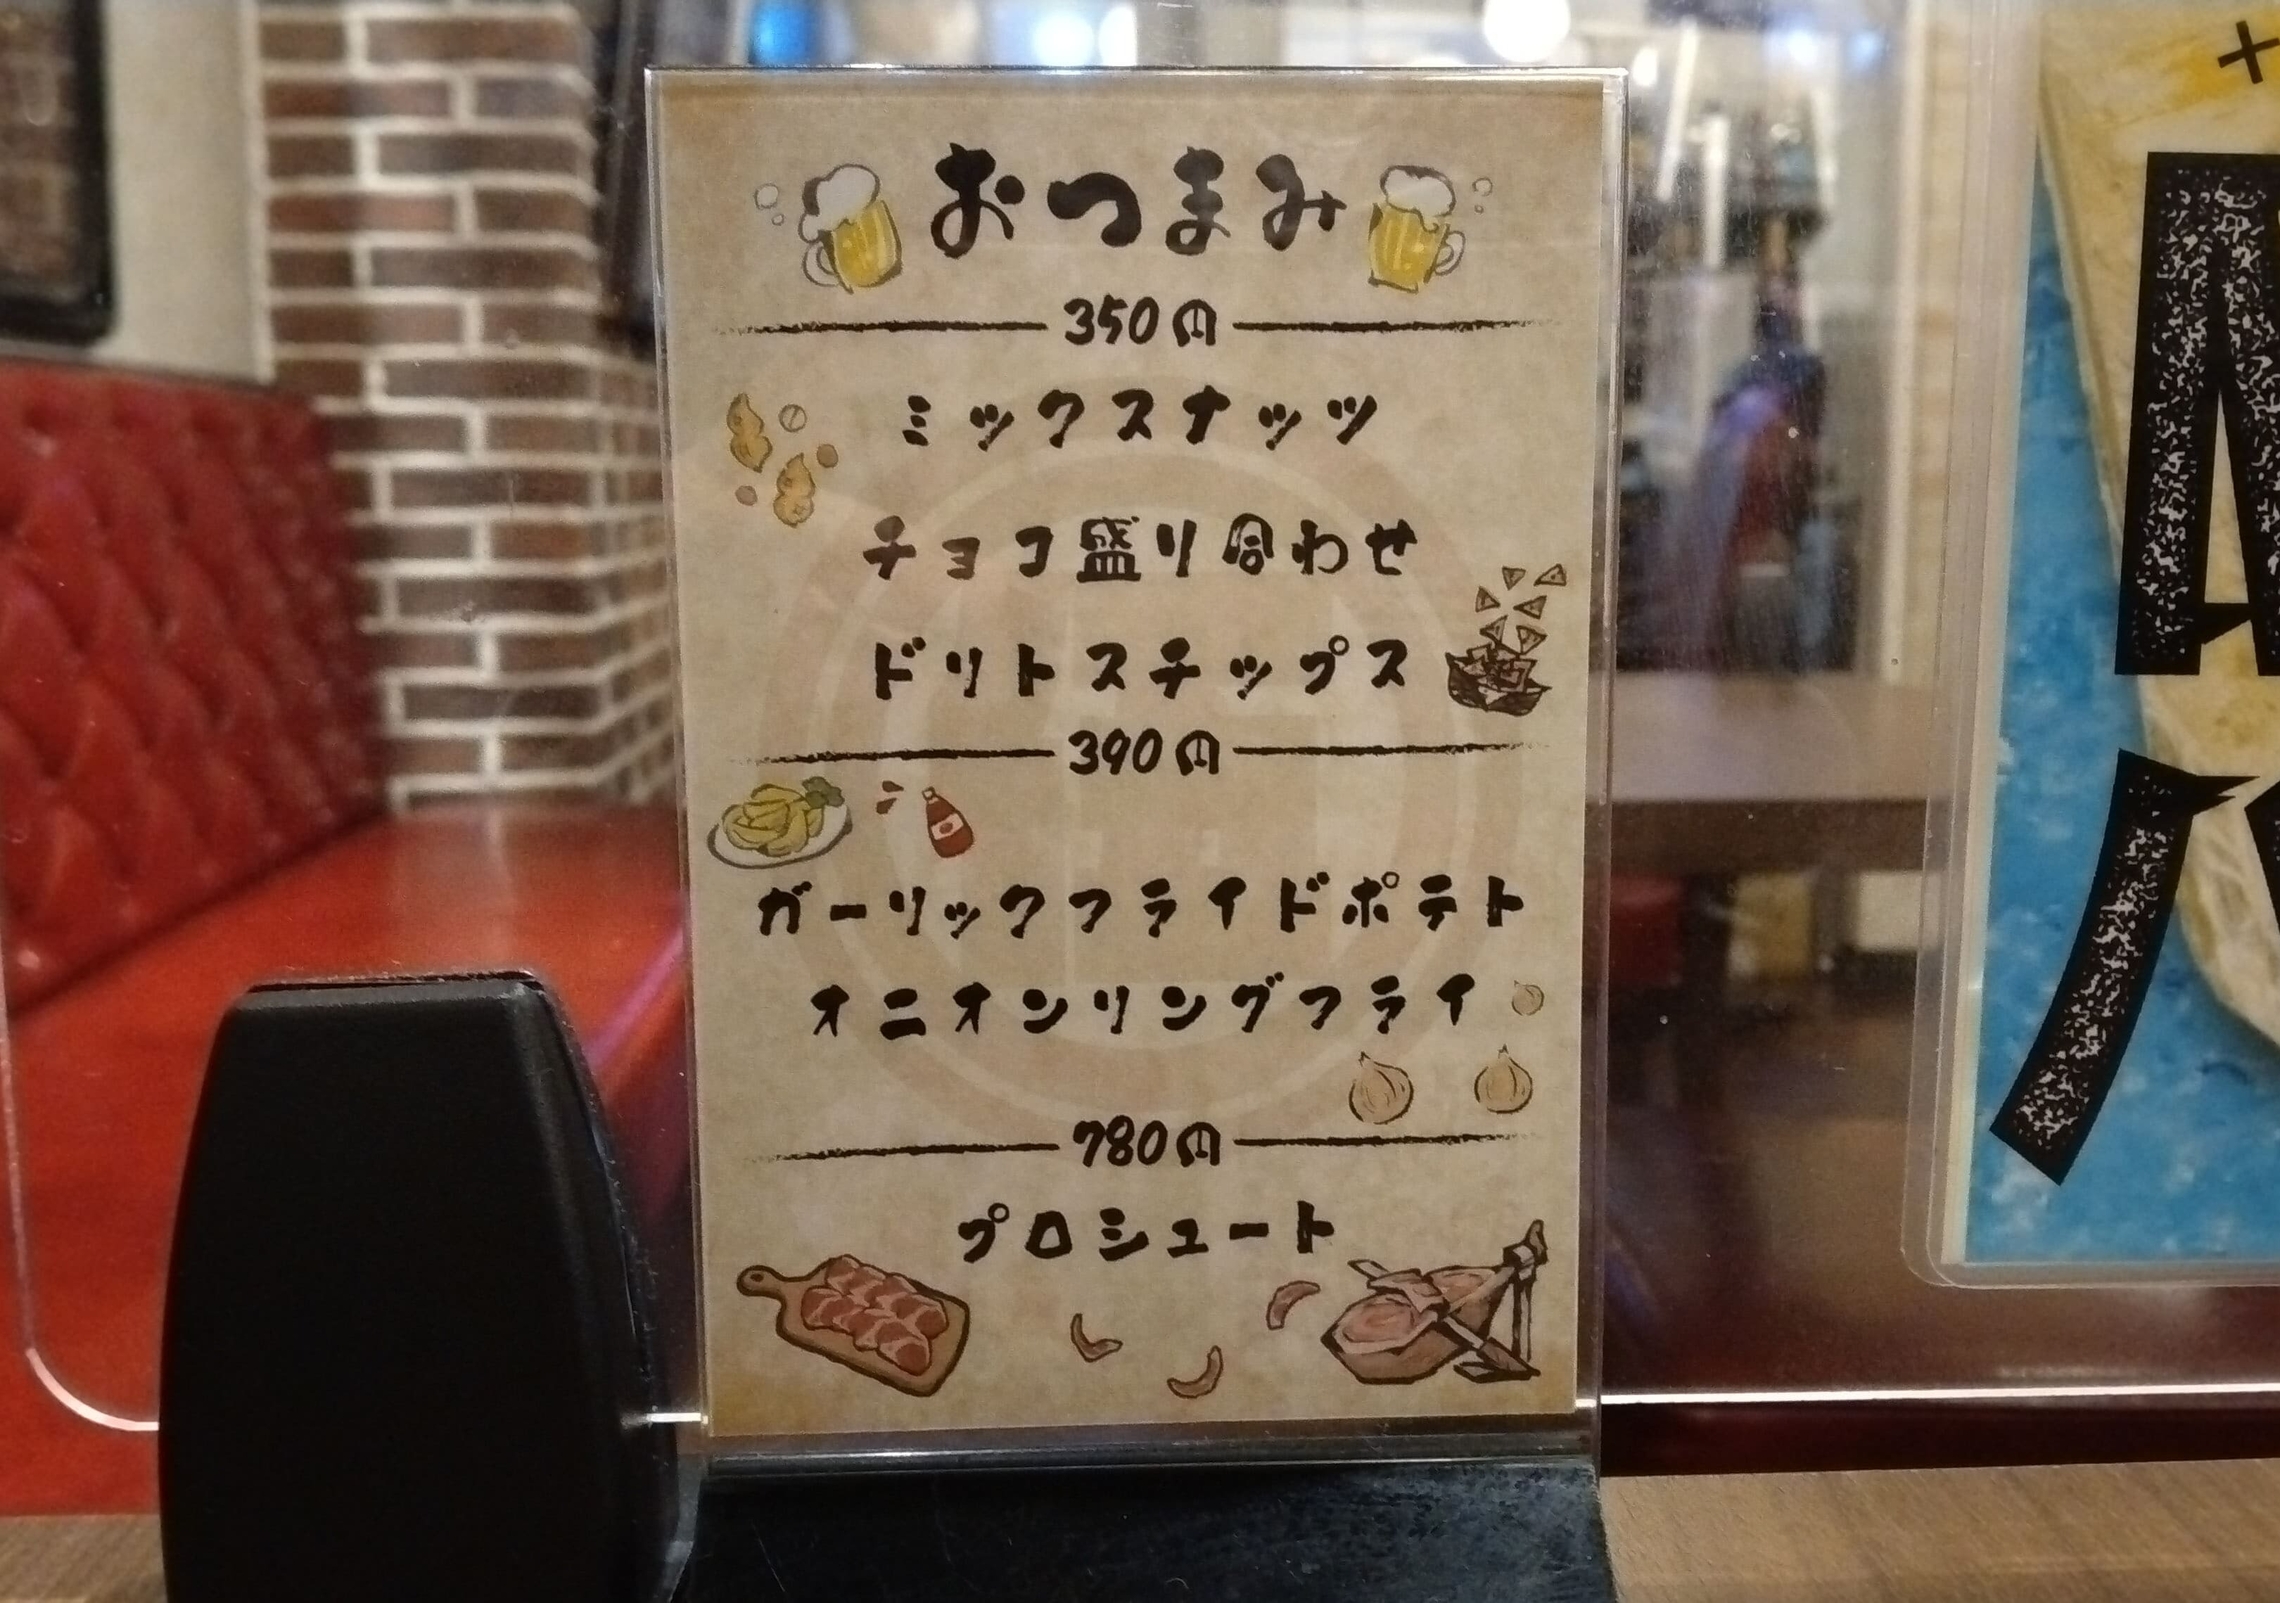 おつまみ
350円
ミックスナッツ
チョコ盛り合わせ
ドリトスチップス
390円
ガーリックフライドポテト
オニオンリングフライ
780円
プロシュート